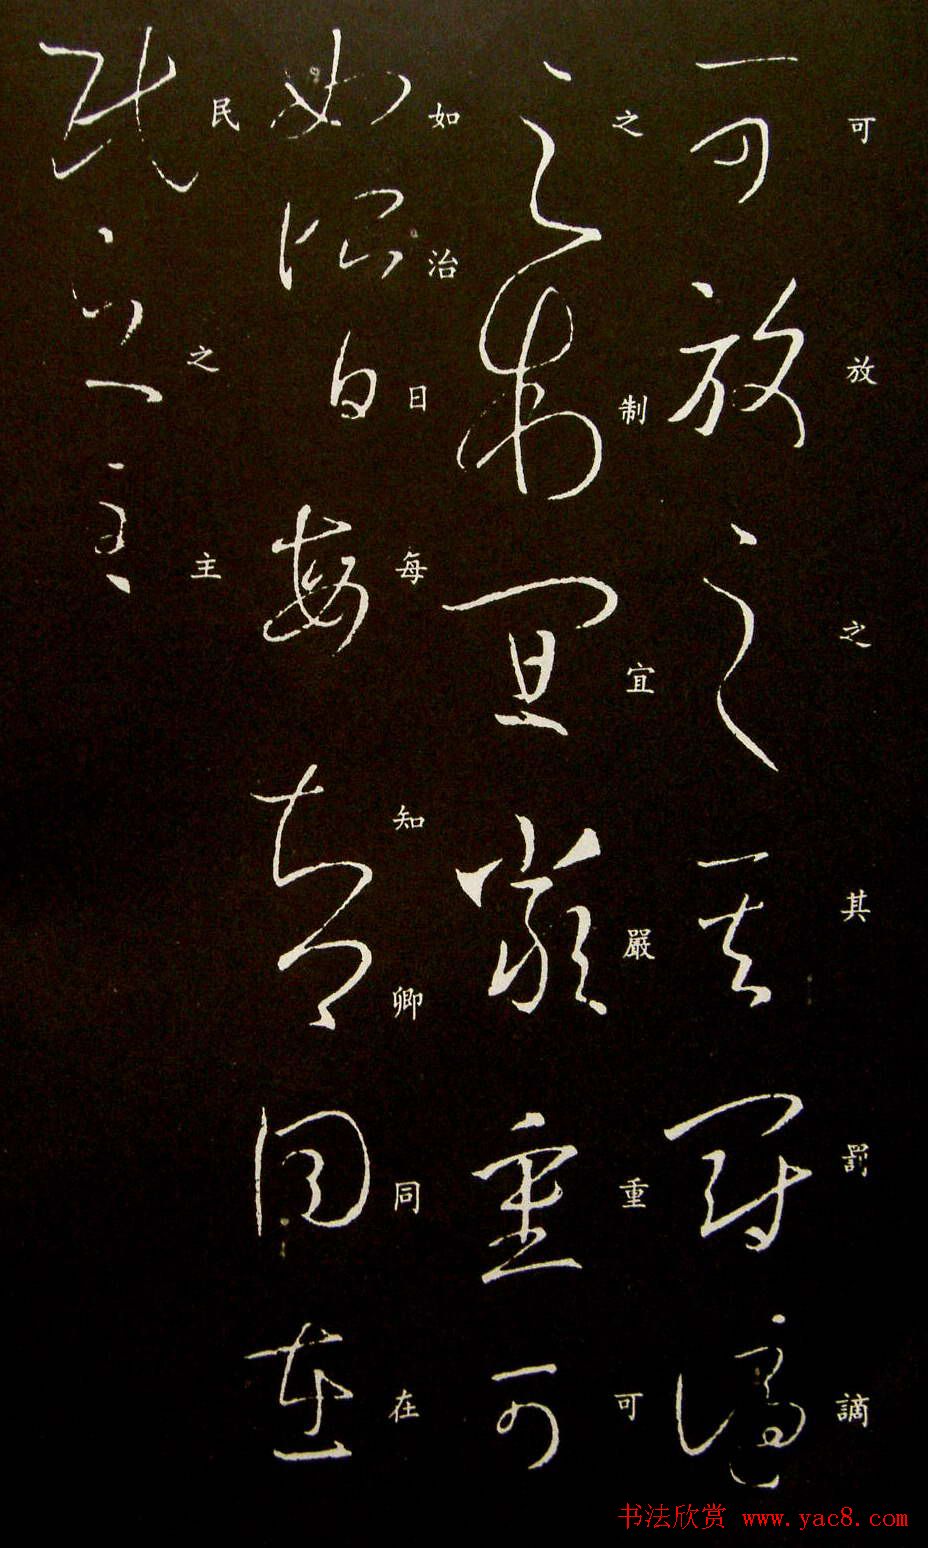 可放之其罰謫
之制宜嚴重可
如治日每知卿同在
民之主
书法欣赏 www.yac8.com